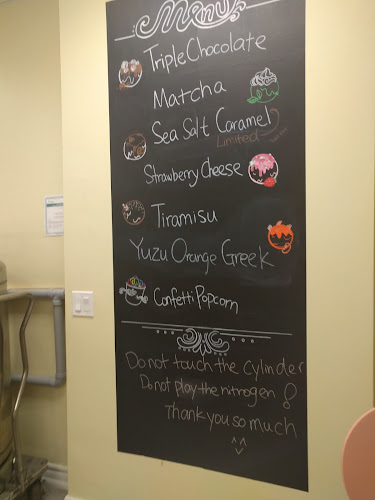 Menu
Triple Chocolate
Matcha
Sea Salt Caramel
Limited
Strawberry Cheese
Tiramisu
Yuzu Orange Greek
Confetti Popcorn
Do not touch the cylinder
Do not play the nitrogen !
Thank you so much
^^